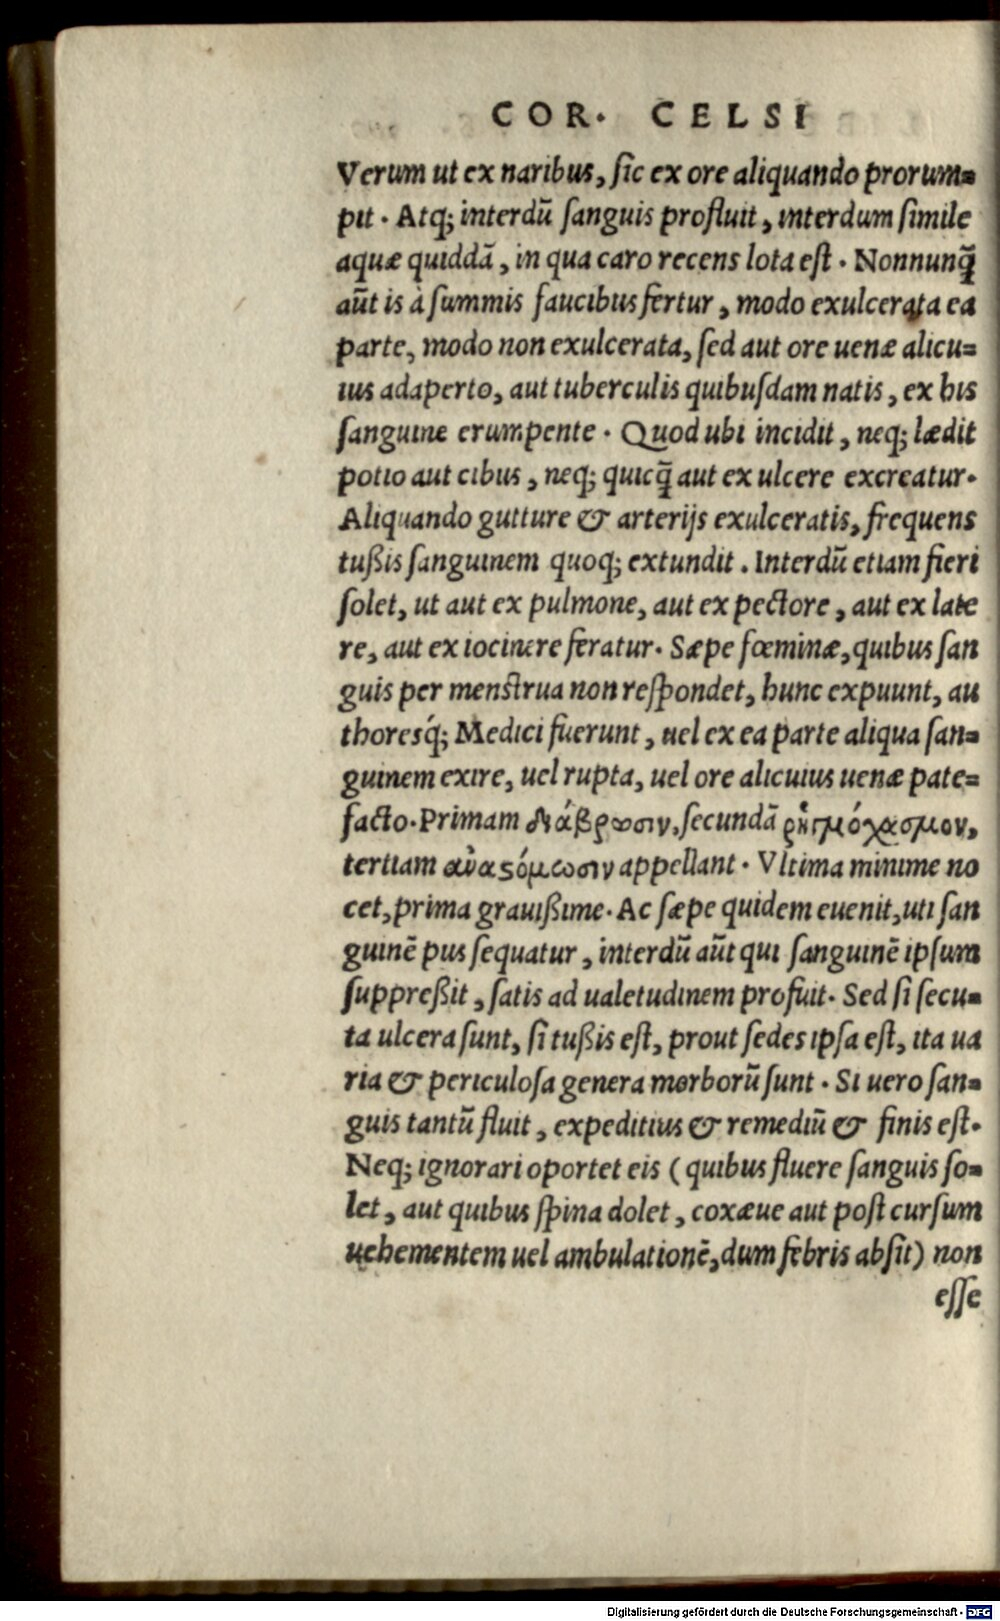 COR. CELSI
Verum ut ex naribus, sic ex ore aliquando prorum=
pit. Atq; interdũ sanguis profluit, interdum simile
aquæ quiddã, in qua caro recens lota est. Nonnunq̃
aũt is à summis faucibus fertur, modo exulcerata ea
parte, modo non exulcerata, sed aut ore uenæ alicu=
ius adaperto, aut tuberculis quibusdam natis, ex his
sanguine erumpente. Quod ubi incidit, neq; lædit
potio aut cibus, neq; quicq̃ aut ex ulcere excreatur.
Aliquando gutture & arterijs exulceratis, frequens
tußis sanguinem quoq; extundit. Interdũ etiam fieri
solet, ut aut ex pulmone, aut ex pectore, aut ex late
re, aut ex iocinere feratur. Sæpe fœminæ, quibus san
guis per menstrua non respondet, hunc expuunt, au
thoresq́; Medici fuerunt, uel ex ea parte aliqua san=
guinem exire, uel rupta, uel ore alicuius uenæ pate=
facto. Primam διάβρωσιν, secundã ῥηγμόχασμον,
tertiam ἀναϛόμωσιν appellant. Vltima minime no
cet, prima grauißime. Ac sæpe quidem euenit, uti san
guinẽ pus sequatur, interdũ aũt qui sanguinẽ ipsum
suppreßit, satis ad ualetudinem profuit. Sed si secu=
ta ulcera sunt, si tußis est, prout sedes ipsa est, ita ua
ria & periculosa genera morborũ sunt. Si uero san=
guis tantũ fluit, expeditius & remediũ & finis est.
Neq; ignorari oportet eis (quibus fluere sanguis so=
let, aut quibus spina dolet, coxæue aut post cursum
uehementem uel ambulationẽ, dum febris absit) non
esse
Digitalisierung gefördert durch die Deutsche Forschungsgemeinschaft - DFG